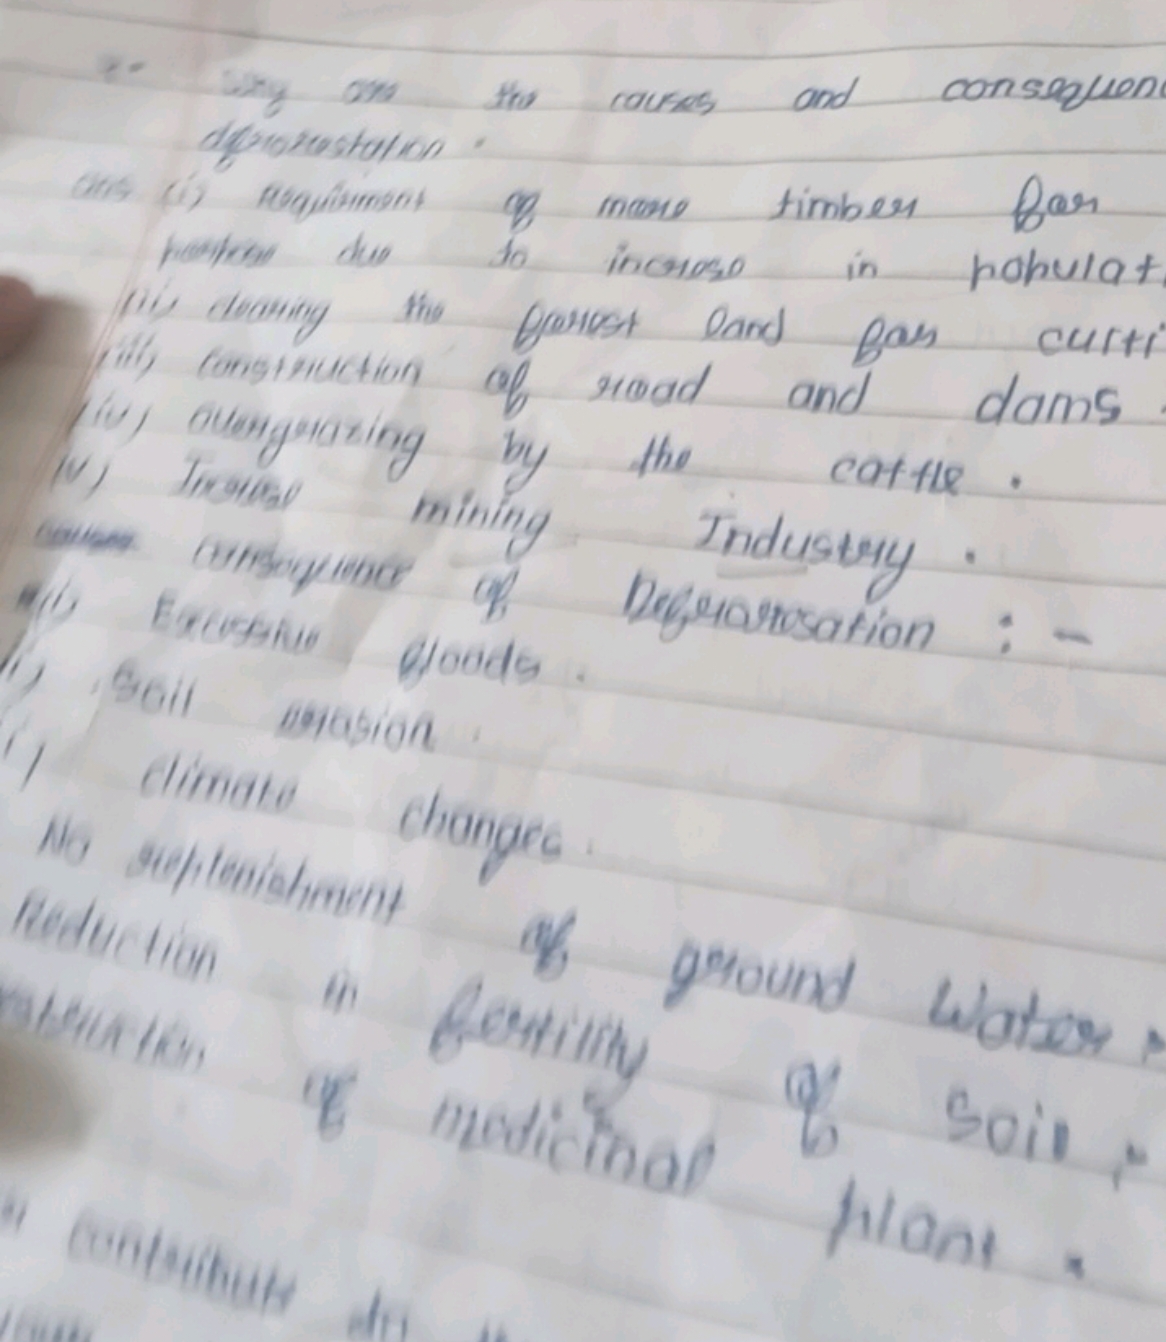 are the causes and consequen
deforestation.
ans (i) Requirment of more timber for
purpose due to increase in populat
(ii) clearing the forest land for curti
(iii) construction of road and dams.
(iv) overgrazing by the cattle.
(v) Increase mining Industry.
consequence of Deforosation :-
(i) Excessive floods.
Soil erosion.
climate changes.
No replenishment of ground Water.
Reduction in fertility of Soil.
of medicinal plant.
contribute